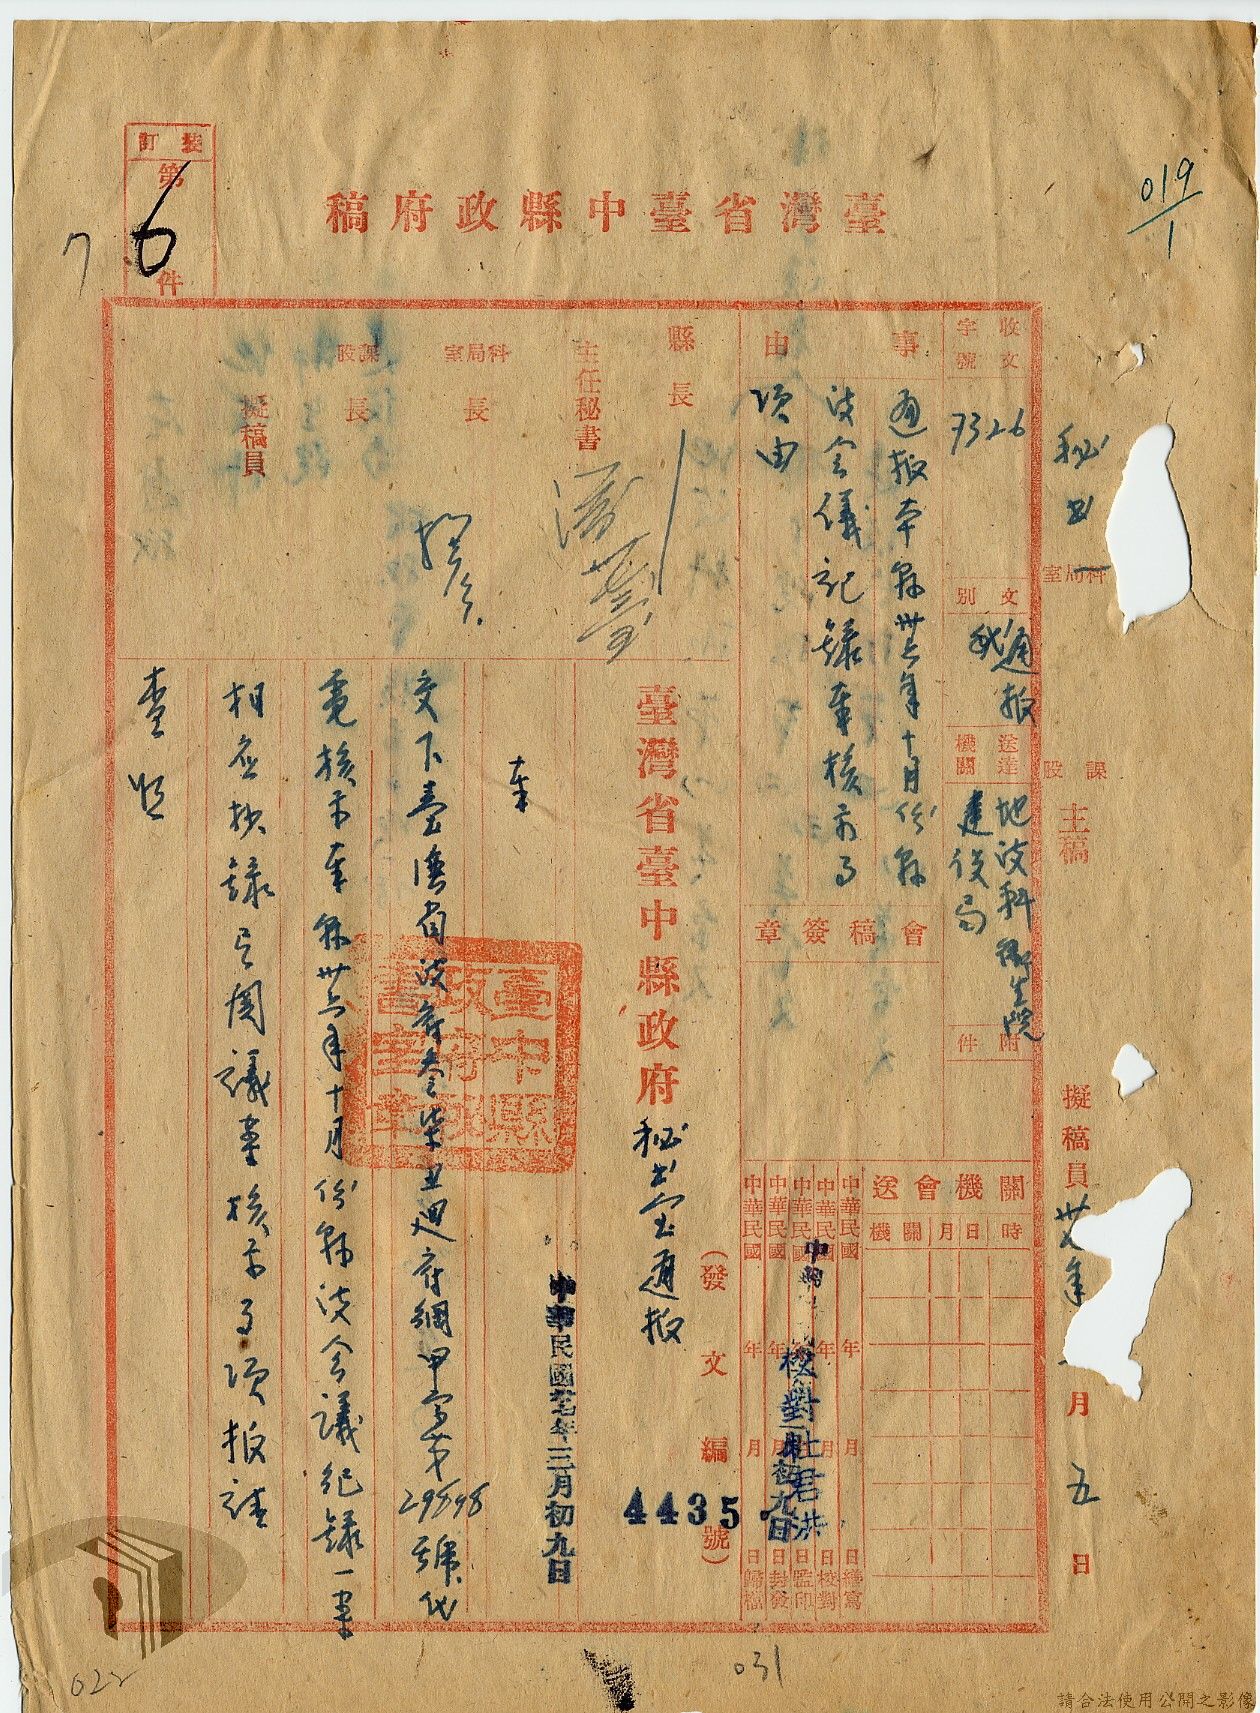 019/1
臺灣省臺中縣政府稿
裝訂
第
6
件
7
秘書
科局室
課股
主稿
擬稿員
月
五
日
收文
字號
7326
文別
通報
送達機關
地政科
衛生院
建設局
附件
事由
通報本縣卅六年十月份縣
政會議記錄奉核示
項由
會稿簽章
縣長
主任秘書
科局室
長
課股
長
擬稿員
關機會送
機關
月日
時
中華民國 年 月 日繕寫
中華民國 年 月 日校對
中華民國 年 月 日監印
中華民國 年 月 日封發
中華民國 年 月 日歸檔
校對
杜君洪
初九日
(發文編號)
4435
臺灣省臺中縣政府
秘書室通報
中華民國卅七年三月初九日
奉
交下臺灣省政府叁柒丑迴府綱甲字第29898號代
電核示本縣卅六年十月份縣政會議紀錄一案
相應抄錄 議案核示 項報請
查照
臺中縣政府秘書室章
022
031
請合法使用公開之影像